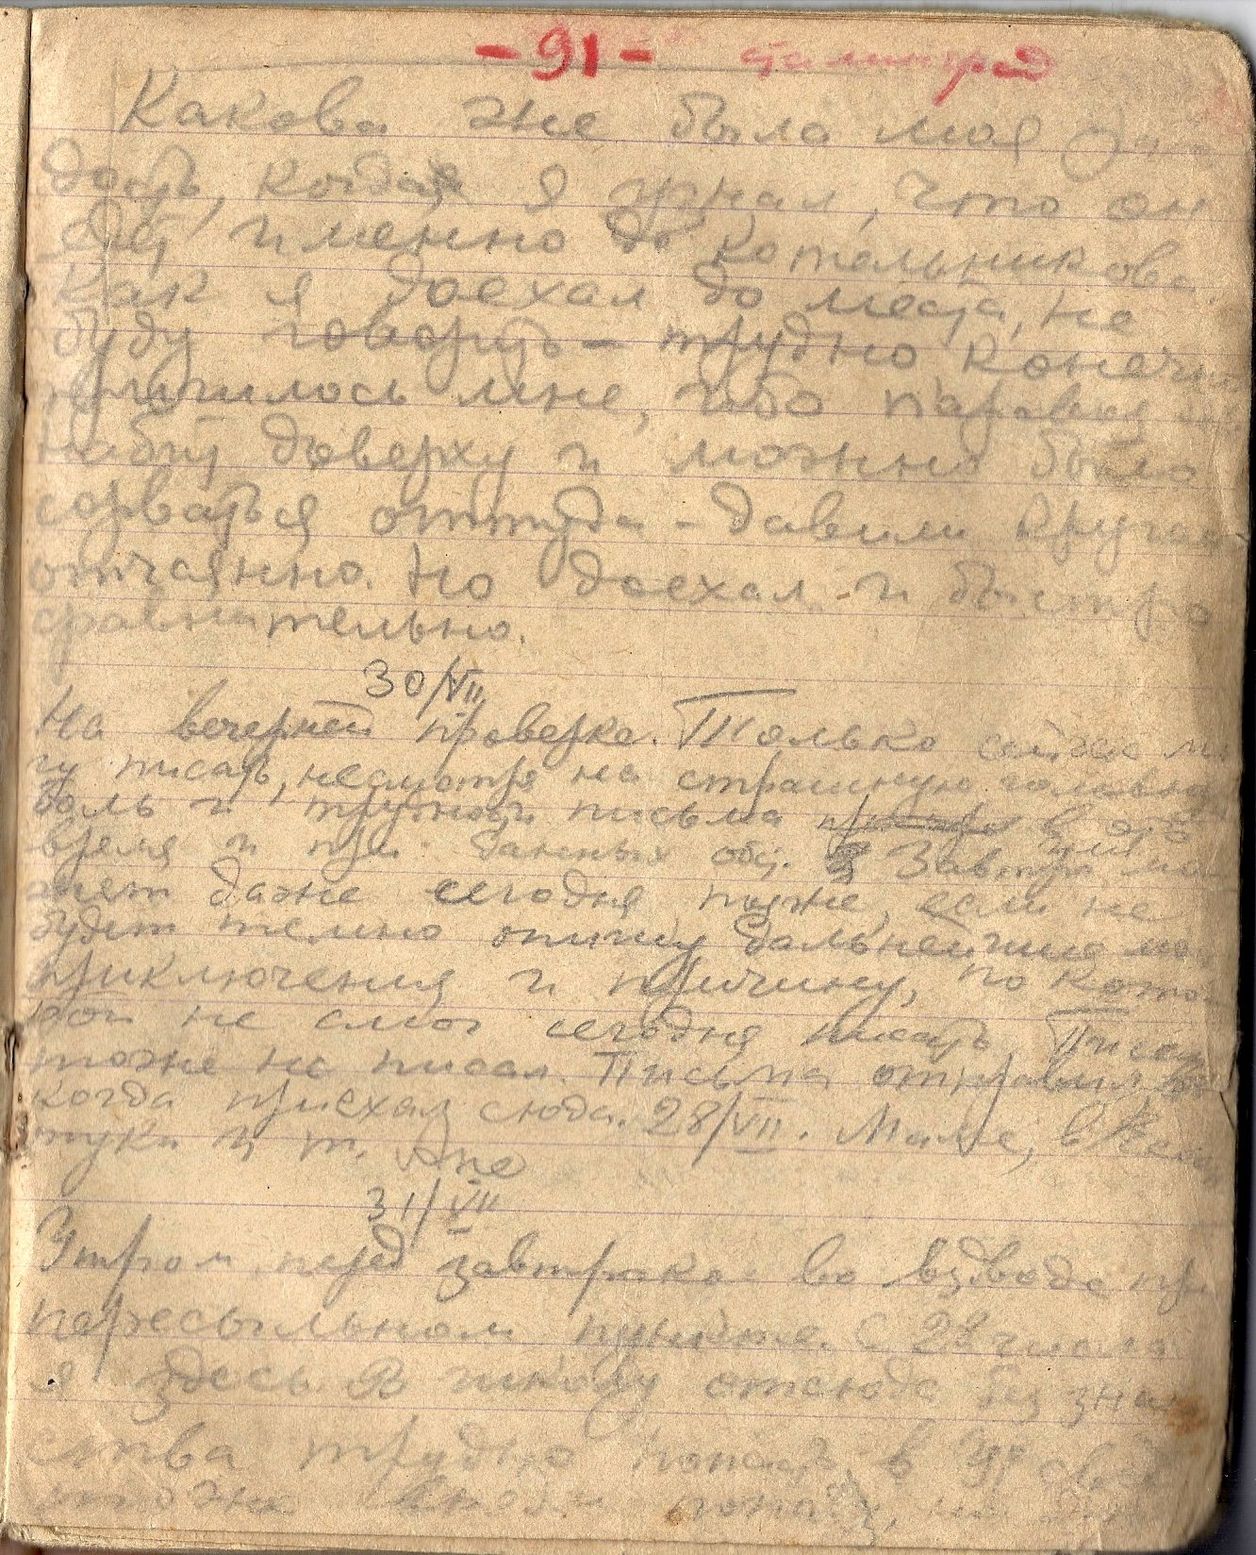 -91- Сталинград
Какова же была моя ра
дость, когда я узнал, что он
едет именно до Котельниково.
Как я доехал до места, не
буду говорить – трудно конечно
пришлось мне, ибо паровоз
набит доверху и можно было
сорваться оттуда – давили
отчаянно. Но доехал и быстро
сравнительно.
30/VII
На вечерней проверке. Только сейчас мо
гу писать, несмотря на страшную головную
боль и трудность письма в это
время и при данных обст. Завтра, мо
жет даже сегодня позже, если не
будет темно опишу дальнейшие мои
приключения и причину, по кото
рой не смог сегодня писать. Писем
тоже не писал. Письма отправил,
когда приехал сюда. 28/VII. Маме, в Ессен
туки и т. Ане
31/VII
Утром перед завтраком во взводе при
пересыльном пункте. С 28 числа
я здесь. В школу отсюда без зна
ства трудно попасть, в
тоже